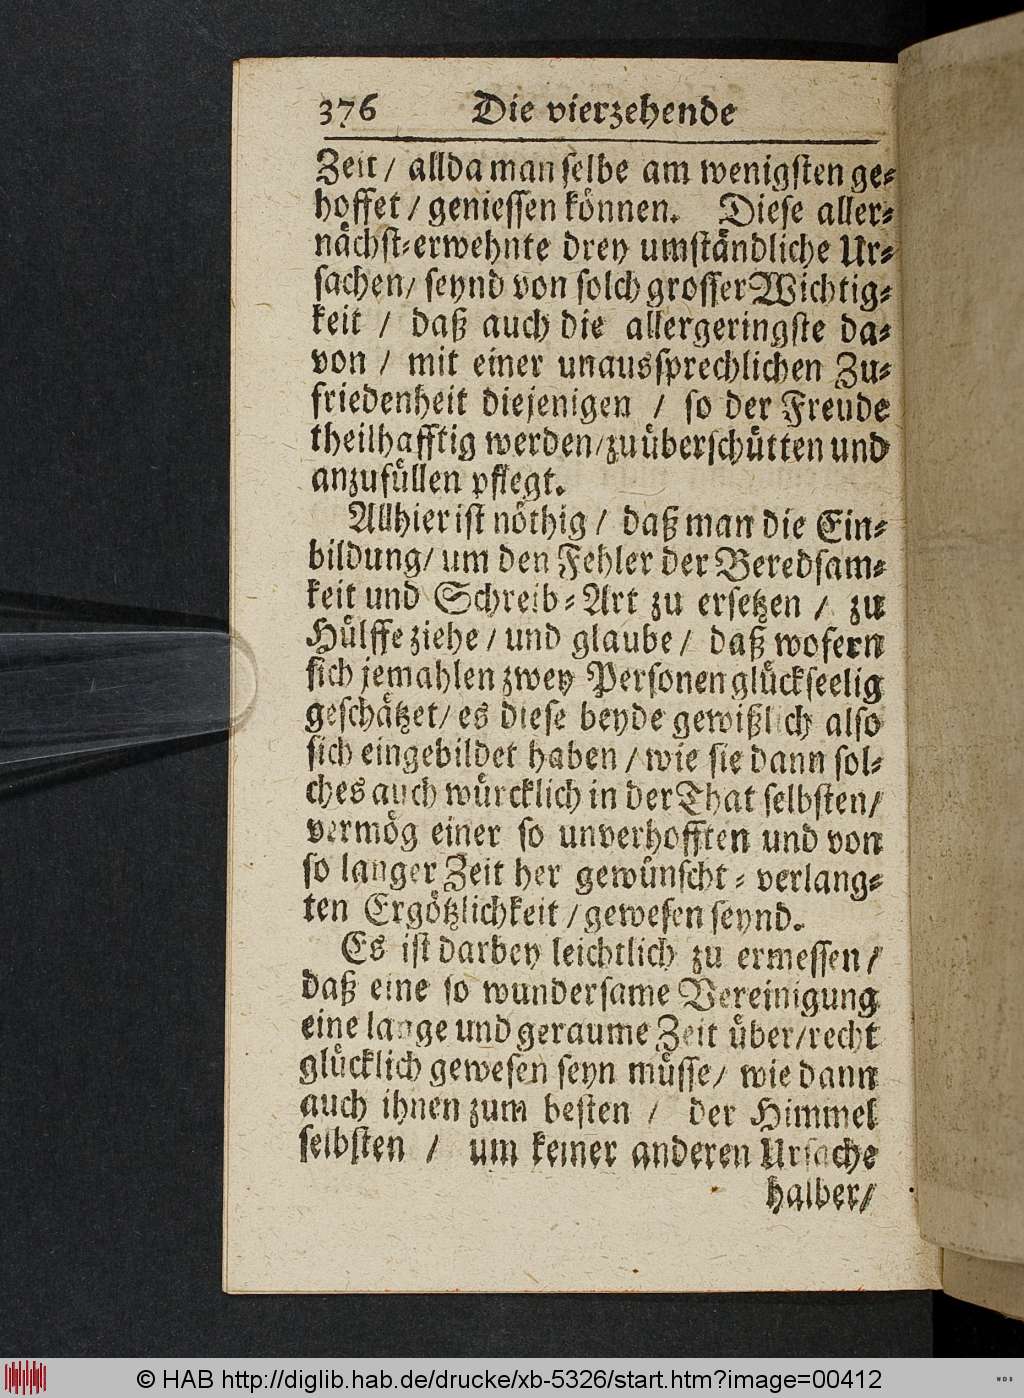 376 Die vierzehende
Zeit / allda man selbe am wenigsten ge-
hoffet / geniessen können. Diese aller-
nächst-erwehnte drey umständliche Ur-
sachen / seynd von solch grosser Wichtig-
keit / daß auch die allergeringste da-
von / mit einer unaussprechlichen Zu-
friedenheit diejenigen / so der Freude
theilhafftig werden / zu überschütten und
anzufüllen pflegt.
Allhier ist nöthig / daß man die Ein-
bildung / um den Fehler der Beredsam-
keit und Schreib-Art zu ersetzen / zu
Hülffe ziehe / und glaube / daß wofern
sich jemahlen zwey Personen glückseelig
geschätzet / es diese beyde gewißlich also
sich eingebildet haben / wie sie dann sol-
ches auch würcklich in der That selbsten /
vermög einer so unverhofften und von
so langer Zeit her gewünscht-verlang-
ten Ergötzlichkeit / gewesen seynd.
Es ist darbey leichtlich zu ermessen /
daß eine so wundersame Vereinigung
eine lange und geraume Zeit über / recht
glücklich gewesen seyn müsse / wie dann
auch ihnen zum besten / der Himmel
selbsten / um keiner anderen Ursache
halber /
© HAB http://diglib.hab.de/drucke/xb-5326/start.htm?image=00412